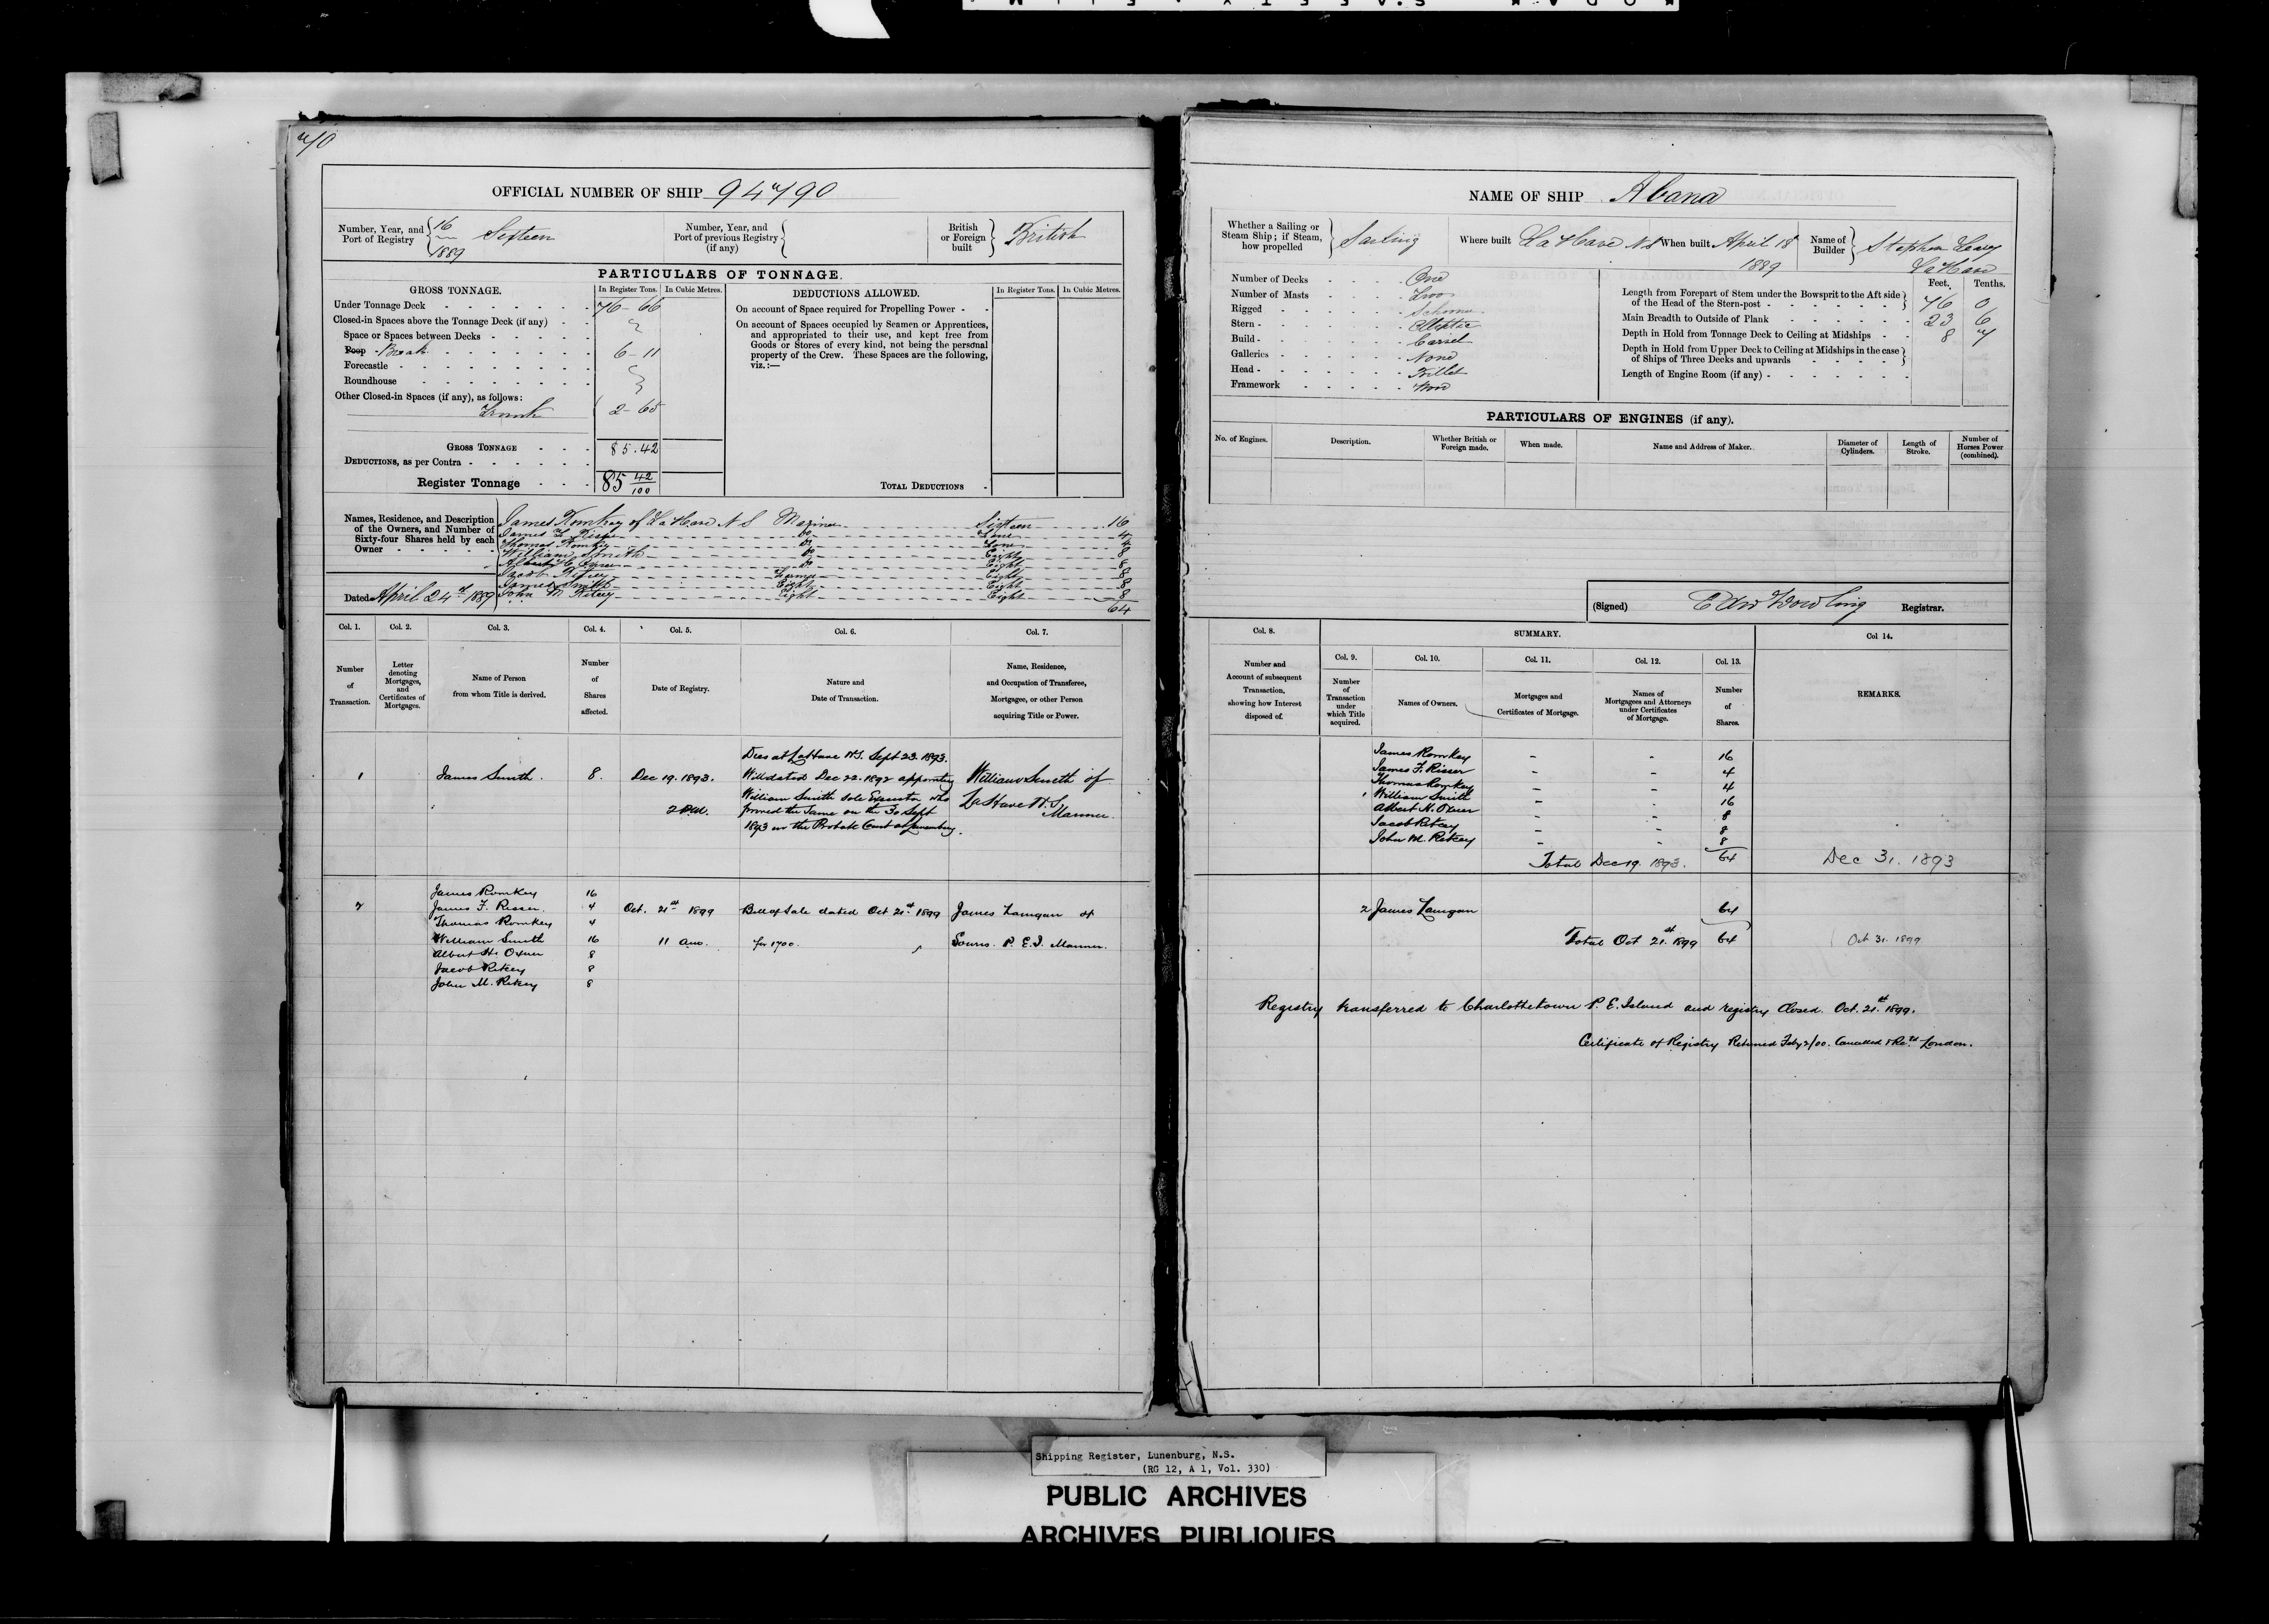 70
OFFICIAL NUMBER OF SHIP 94790
Number, Year, and Port of Registry 16 1889 Sixteen
Number, Year, and Port of previous Registry (if any)
British or Foreign built British
PARTICULARS OF TONNAGE.
GROSS TONNAGE. In Register Tons. In Cubic Metres.
Under Tonnage Deck 76-66
Closed-in Spaces above the Tonnage Deck (if any)
Space or Spaces between Decks
Poop Break 6-11
Forecastle
Roundhouse
Other Closed-in Spaces (if any), as follows:
Trunk 2-65
GROSS TONNAGE 85.42
DEDUCTIONS, as per Contra
Register Tonnage 85 42/100
DEDUCTIONS ALLOWED. In Register Tons. In Cubic Metres.
On account of Space required for Propelling Power
On account of Spaces occupied by Seamen or Apprentices,
and appropriated to their use, and kept free from
Goods or Stores of every kind, not being the personal
property of the Crew. These Spaces are the following,
viz.:—
TOTAL DEDUCTIONS
Names, Residence, and Description
of the Owners, and Number of
Sixty-four Shares held by each
Owner
James Romkey of La Have N S Mariner Sixteen 16
James F. Risser Do 4
Thomas Romkey Do 4
William Smith Do Eight 8
Albert H Oxner Do Eight 8
Jacob Ritcey Farmer Eight 8
James Smith Eight Eight 8
John M Ritcey Eight Eight 8
64
Dated April 24th 1889
Col. 1. Col. 2. Col. 3. Col. 4. Col. 5. Col. 6. Col. 7.
Number of Transaction.
Letter denoting Mortgages, and Certificates of Mortgages.
Name of Person from whom Title is derived.
Number of Shares affected.
Date of Registry.
Nature and Date of Transaction.
Name, Residence, and Occupation of Transferee, Mortgage, or other Person acquiring Title or Power.
1 James Smith. 8. Dec 19. 1893. 2 P.M.
Dies at LaHave N.S. Sept 23. 1893.
Will dated Dec 22. 1892 appointing
William Smith Sole Executor who
proved the Same on the 30 Sept
1893 in the Probate Court at Lunenburg.
William Smith of
LaHave N.S.
Mariner.
2 James Romkey 16
James F. Risser. 4 Oct. 21st 1899 Bill of Sale dated Oct 21st 1899 James Langan of
Thomas Romkey 4
William Smith 16 11 am. for 1700. Souris. P.E.I. Mariner.
Albert H. Oxner 8
Jacob Ritcey 8
John M. Ritcey 8
NAME OF SHIP Abana
Whether a Sailing or Steam Ship; if Steam, how propelled Sailing
Where built La Have N S
When built April 18 1889
Name of Builder Stephen Leary La Have
Number of Decks One
Number of Masts Two
Rigged Schooner
Stern Elliptic
Build Carvel
Galleries None
Head Billet
Framework Wood
Feet. Tenths.
Length from Forepart of Stem under the Bowsprit to the Aft side
of the Head of the Stern-post 76 0
Main Breadth to Outside of Plank 23 6
Depth in Hold from Tonnage Deck to Ceiling at Midships 8 7
Depth in Hold from Upper Deck to Ceiling at Midships in the case
of Ships of Three Decks and upwards
Length of Engine Room (if any)
PARTICULARS OF ENGINES (if any).
No. of Engines. Description. Whether British or Foreign made. When made. Name and Address of Maker. Diameter of Cylinders. Length of Stroke. Number of Horses Power (combined).
(Signed) Edw Dowling Registrar.
Col. 8. SUMMARY. Col 14.
Col. 9. Col. 10. Col. 11. Col. 12. Col. 13.
Number and Account of subsequent Transaction, showing how Interest disposed of.
Number of Transaction under which Title acquired.
Names of Owners.
Mortgages and Certificates of Mortgage.
Names of Mortgagees and Attorneys under Certificates of Mortgage.
Number of Shares.
REMARKS.
James Romkey 16
James F. Risser 4
Thomas Romkey 4
1 William Smith 16
Albert H. Oxner 8
Jacob Ritcey 8
John M. Ritcey 8
Total Dec 19. 1893. 64 Dec 31. 1893
2 James Langan 64
Total Oct 21st 1899 64 Oct 31. 1899
Registry transferred to Charlottetown P. E. Island and registry Closed. Oct. 21st 1899.
Certificate of Registry Returned Feby 2/00. Cancelled London.
Shipping Register, Lunenburg, N.S.
(RG 12, A 1, Vol. 330)
PUBLIC ARCHIVES
ARCHIVES PUBLIQUES